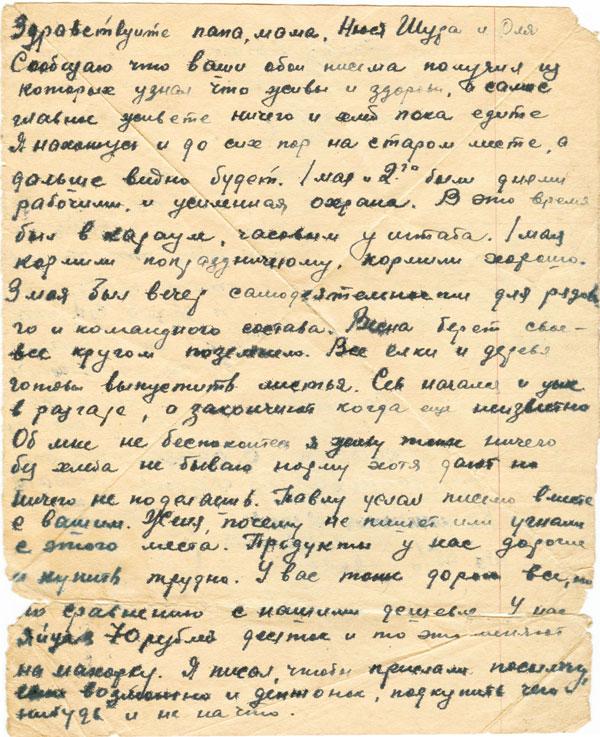 Здравствуйте папа, мама, Нюся Шура и Оля
Сообщаю что ваши обои писма получил из
которых узнал что живы и здоровы, а самое
главное живете ничего и хлеб пока едите
Я нахожусь и до сих пор на старом месте, а
дальше видно будет. 1 мая и 2го были днями
рабочими, и усиленная охрана. В это время
был в карауле, часовым у штаба. 1 мая
кормили попраздничному, кормили хорошо.
3 мая был вечер самодеятельности для рядово
го и командного состава. Весна берет свое-
все кругом позеленело. Все ёлки и деревья
готовы выпустить листья. Сев начался и уже
в разгаре, а закончит когда еще неизвестно
Об мне не беспокоитесь я живу тоже ничего
без хлеба не бываю норму хотя дают но
ничего не поделаешь. Павлу услал письмо вместе
с вашим. Женя, почему не пишет или угнали
с этого места. Продукты у нас дорогие
и купить трудно. У вас тоже дорого все, но
по сравнению с нашими дешевле. У нас
яйца 70 рублей десяток и то это меняют
на махорку. Я писал, чтобы прислали посылку,
если возможно и деньжонок, подкупить чего
нибудь и не на что.